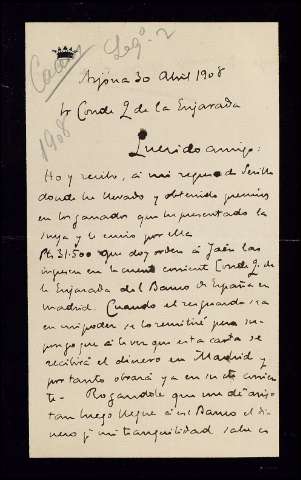 Legº- 2
1908
Arjona 30 Abril 1908
Sr Conde 2 de la Enjarada
Querido amigo:
Hoy recibo, a mi regreso de Sevilla
donde he llevado y obtenido premios
en los ganados que he presentado la
suya y le envio por ella
Pts 31.500 que doy orden á Jaén las
ingresen en la cuenta corriente Conde 2 de
la Enjarada del Banco de España en
Madrid. Cuando el resguardo sea
en mi poder se lo remitiré pero su-
pongo que á la vez que esta carta se
recibirá el dinero en Madrid y
por tanto obrará ya en su cta corrien
te- Rogandole que me dé aviso
tan luego llegue á ese Banco el di-
nero p<sup>a</sup> mi tranquilidad sabe es